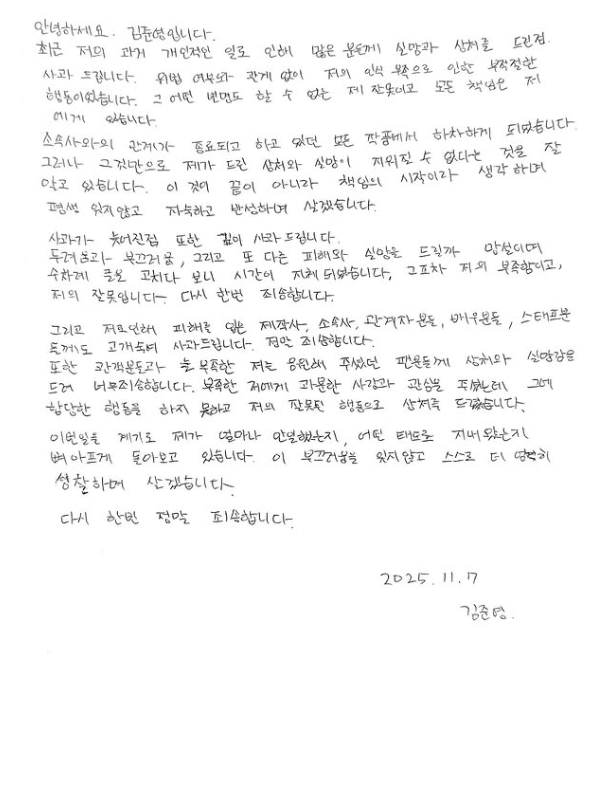 안녕하세요. 김준영입니다.
최근 저의 과거 개인적인 일로 인해 많은 분들께 실망과 상처를 드린점
사과 드립니다. 위법 여부와 관계 없이 저의 인식 부족으로 인한 부적절한
행동이었습니다. 그 어떤 변명도 할 수 없는 제 잘못이고 모든 책임은 저
에게 있습니다.
소속사와의 관계가 종료되고 하고 있던 모든 작품에서 하차하게 되었습니다.
그러나 그것만으로 제가 드린 상처와 실망이 지워질 수 없다는 것을 잘
알고 있습니다. 이 것이 끝이 아니라 책임의 시작이라 생각하며
평생 잊지않고 자숙하고 반성하며 살겠습니다.
사과가 늦어진점 또한 깊이 사과드립니다.
두려움과 부끄러움, 그리고 또 다른 피해와 실망을 드릴까 망설이며
수차례 글을 고치다 보니 시간이 지체 되었습니다, 그조차 저의 부족함이고,
저의 잘못입니다. 다시 한번 죄송합니다.
그리고 저로인해 피해를 입은 제작사, 소속사, 관계자분들, 배우분들, 스태프분
들께도 고개숙여 사과드립니다. 정말 죄송합니다.
또한 관객분들과 늘 부족한 저를 응원해 주셨던 팬분들께 상처와 실망감을
드려 너무죄송합니다. 부족한 저에게 과분한 사랑과 관심을 주셨는데 그에
합당한 행동을 하지 못하고 저의 잘못된 행동으로 상처를 드렸습니다.
이번일을 계기로 제가 얼마나 안일했는지, 어떤 태도로 지내왔는지
뼈아프게 돌아보고 있습니다. 이 부끄러움을 잊지않고 스스로 더 엄격히
성찰하며 살겠습니다.
다시 한번 정말 죄송합니다.
2025.11.7
김준영.